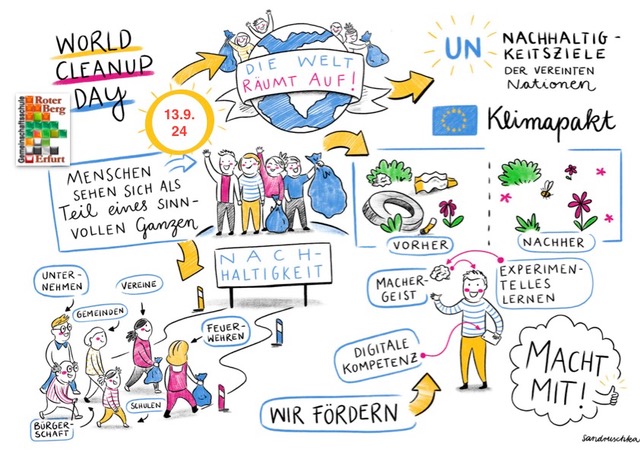 WORLD
CLEANUP
DAY
Gemeinschaftsschule
Roter
Berg
Erfurt
13.9.
24
DIE WELT
RÄUMT AUF!
UN
NACHHALTIG-
KEITSZIELE
DER VEREINTEN
Nationen
Klimapakt
MENSCHEN
SEHEN SICH ALS
Teil eines SINN-
VOLLEN Ganzen
VORHER
NACHHER
NACH-
HALTIGKEIT
UNTER-
NEHMEN
GEMEINDEN
VEREINE
FEUER-
WEHREN
SCHULEN
BÜRGER-
SCHAFT
MACHER-
GEIST
EXPERIMEN-
TELLES
LERNEN
DIGITALE
KOMPETENZ
WIR FÖRDERN
MACHT
MIT!
sandruschka